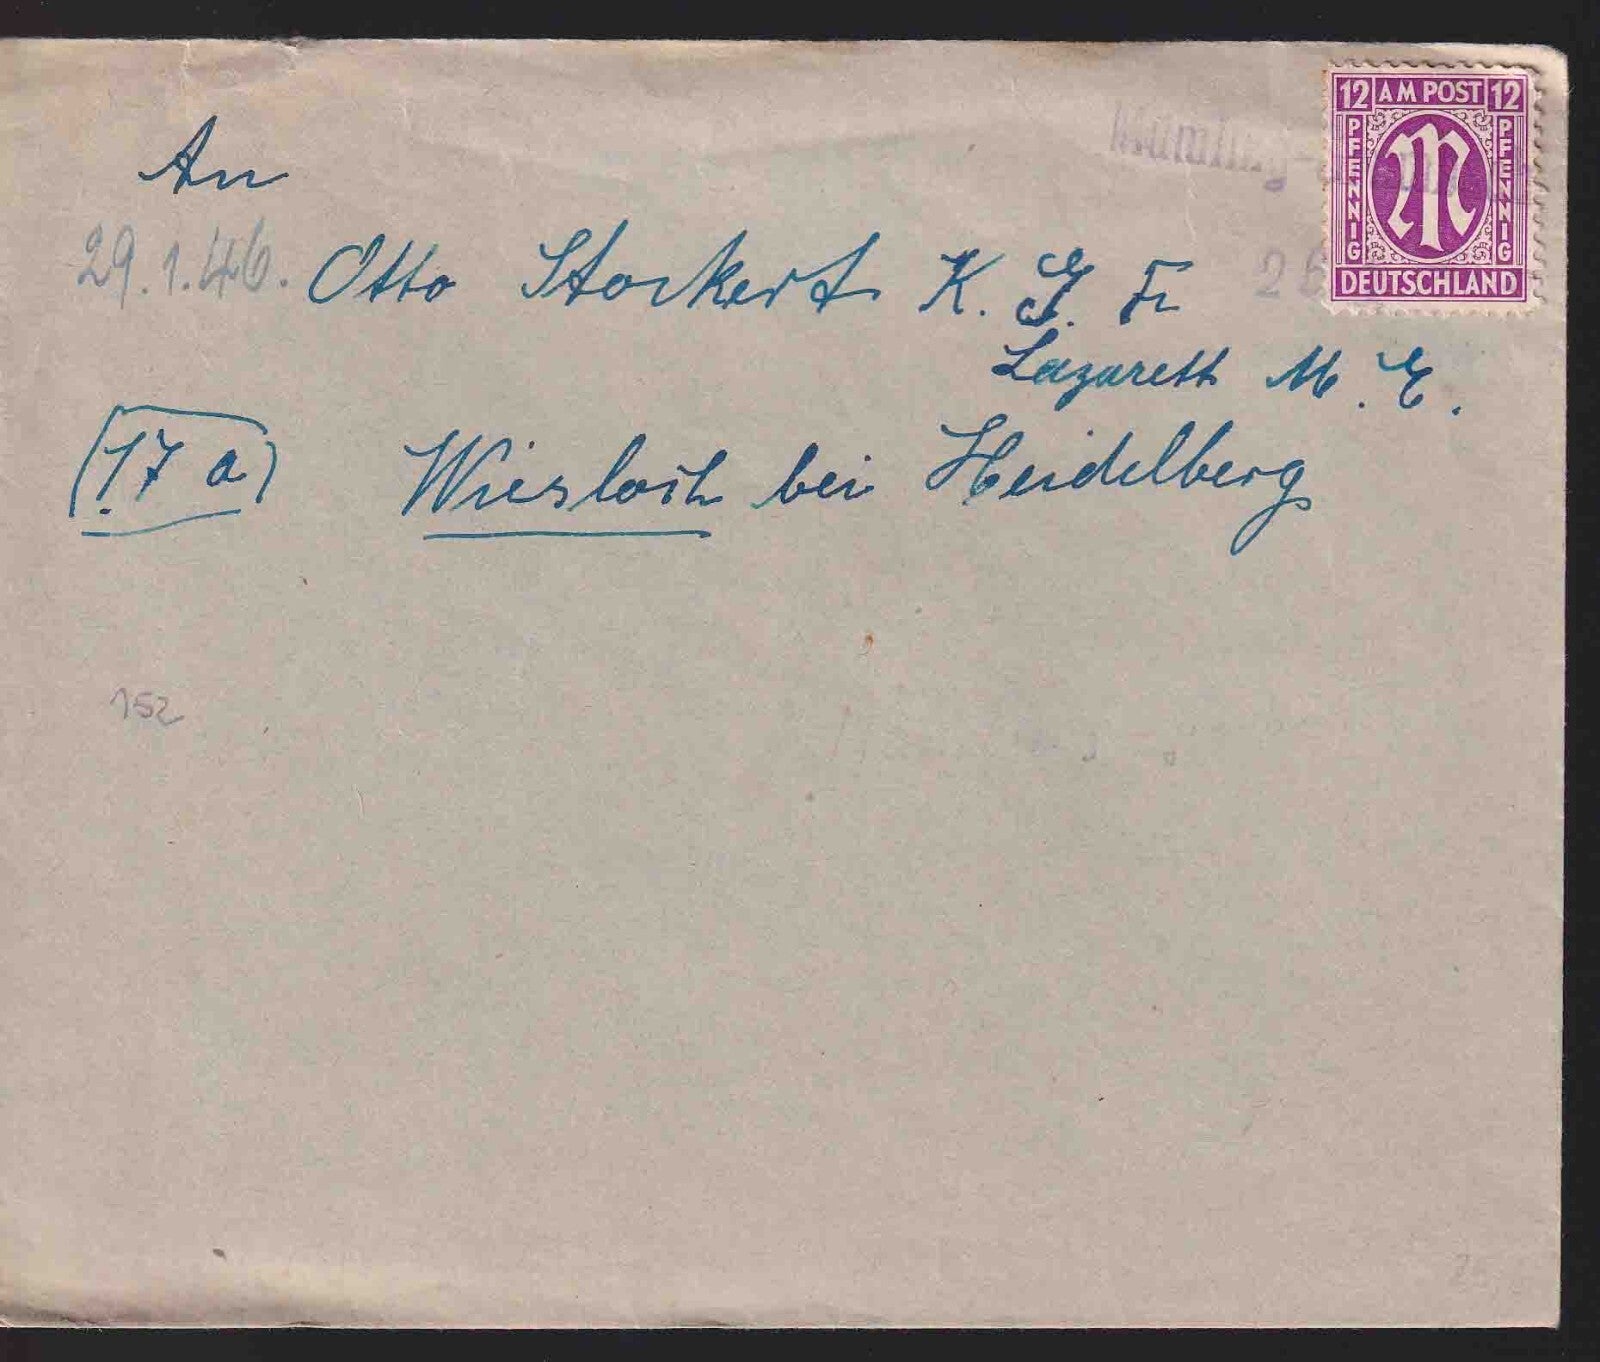 12 AM POST 12
PFENNIG PFENNIG
DEUTSCHLAND
An
29.1.46. Otto Stockert K. G. Fr
Lazarett M. E.
(17 a) Wiesloch bei Heidelberg
152